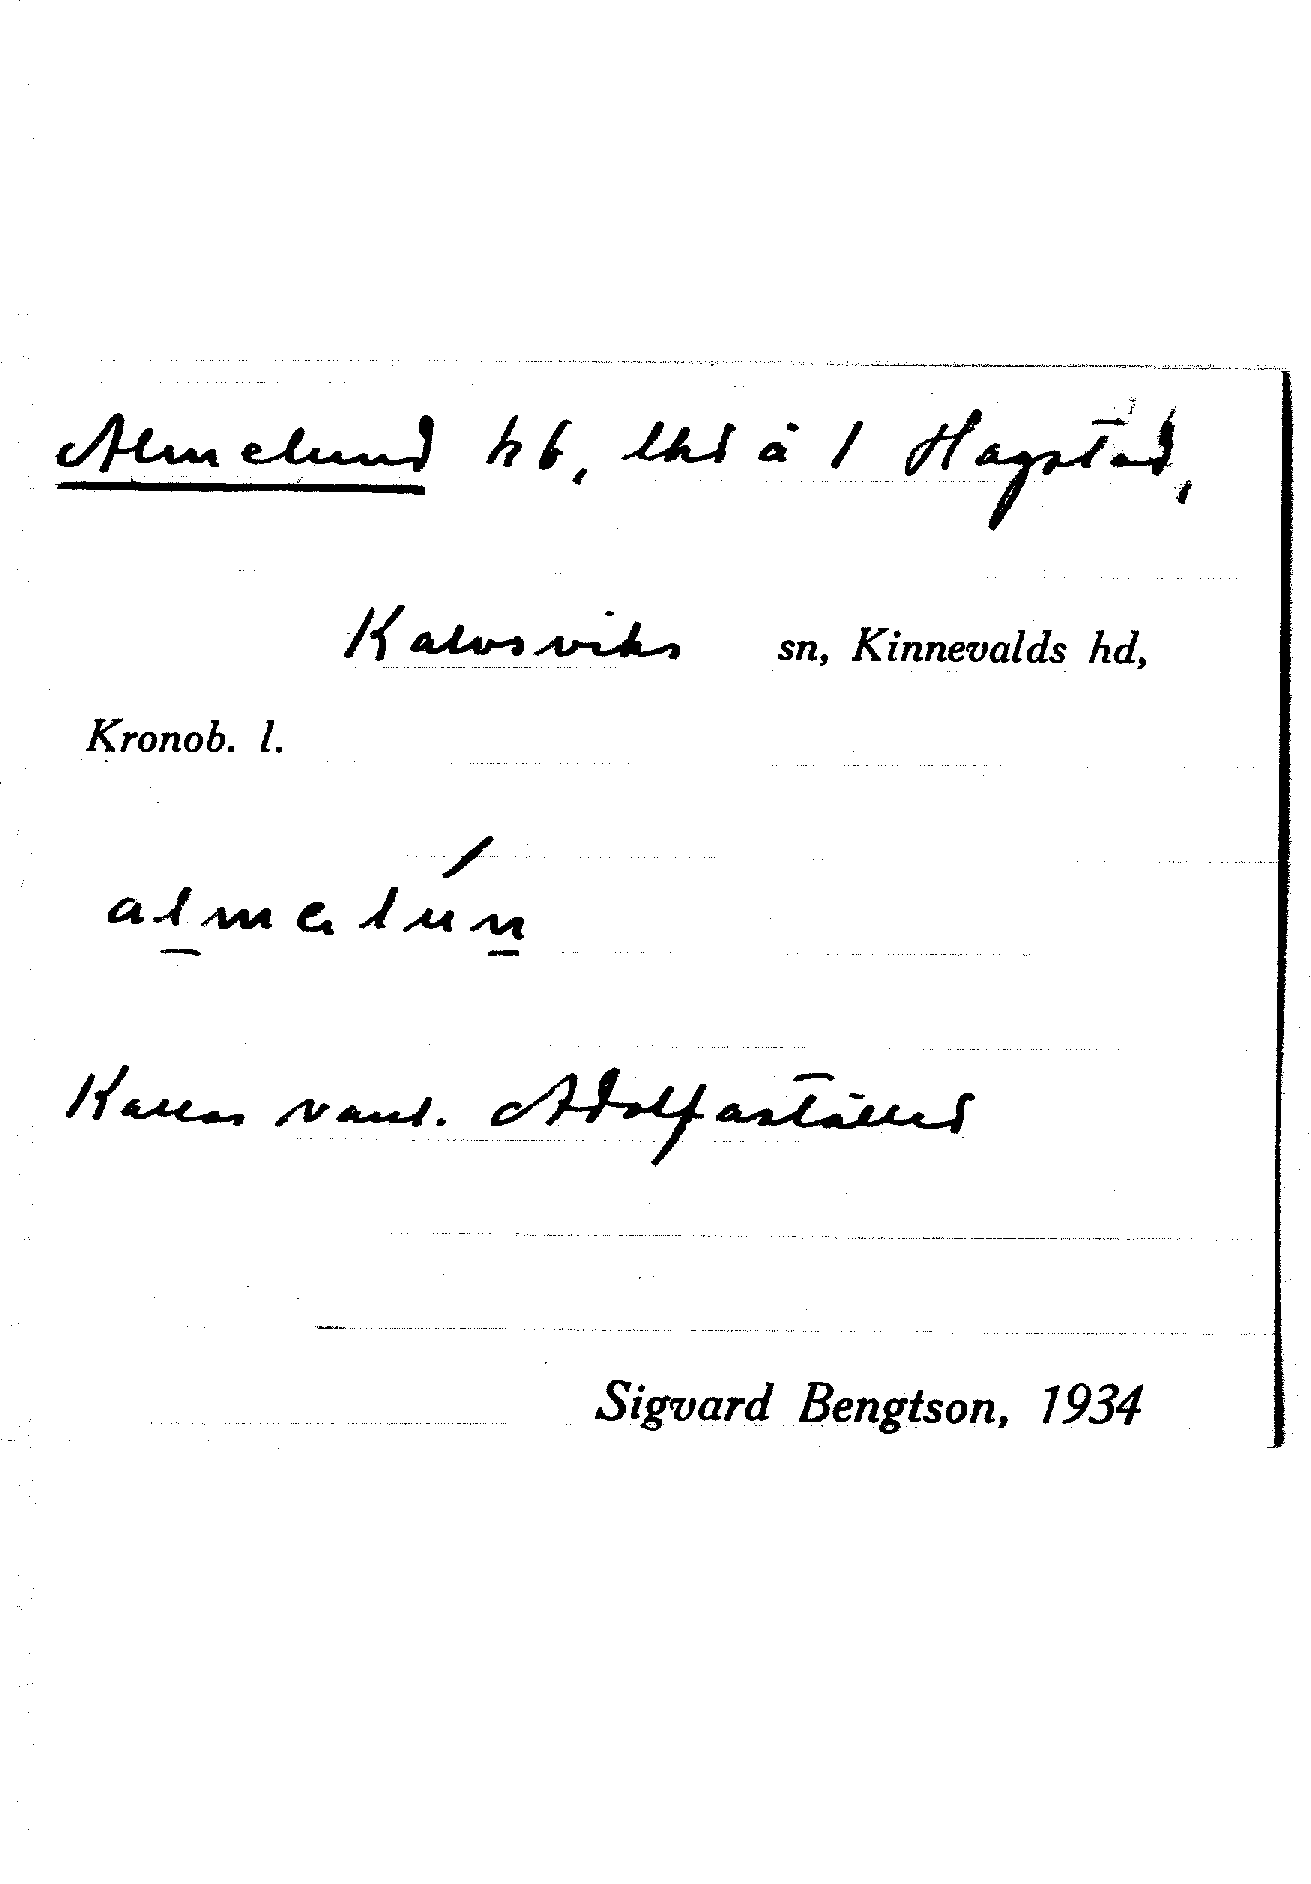 Almelund hb, lhd å 1 Hagstad,
Kalvsviks sn, Kinnevalds hd,
Kronob. l.
almelún
Kallas vanl. Adolfastället
Sigvard Bengtson, 1934